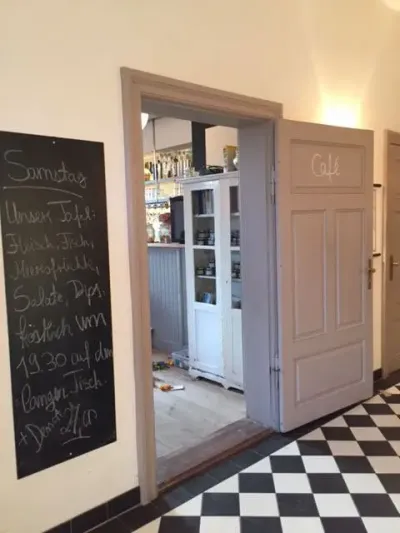 Samstag
Unser Tafel:
Fleisch, Fisch,
Meeresfrüchte,
Salate, Dips,
köstlich um
19.30 auf dem
langen Tisch.
+ Dessert
Café